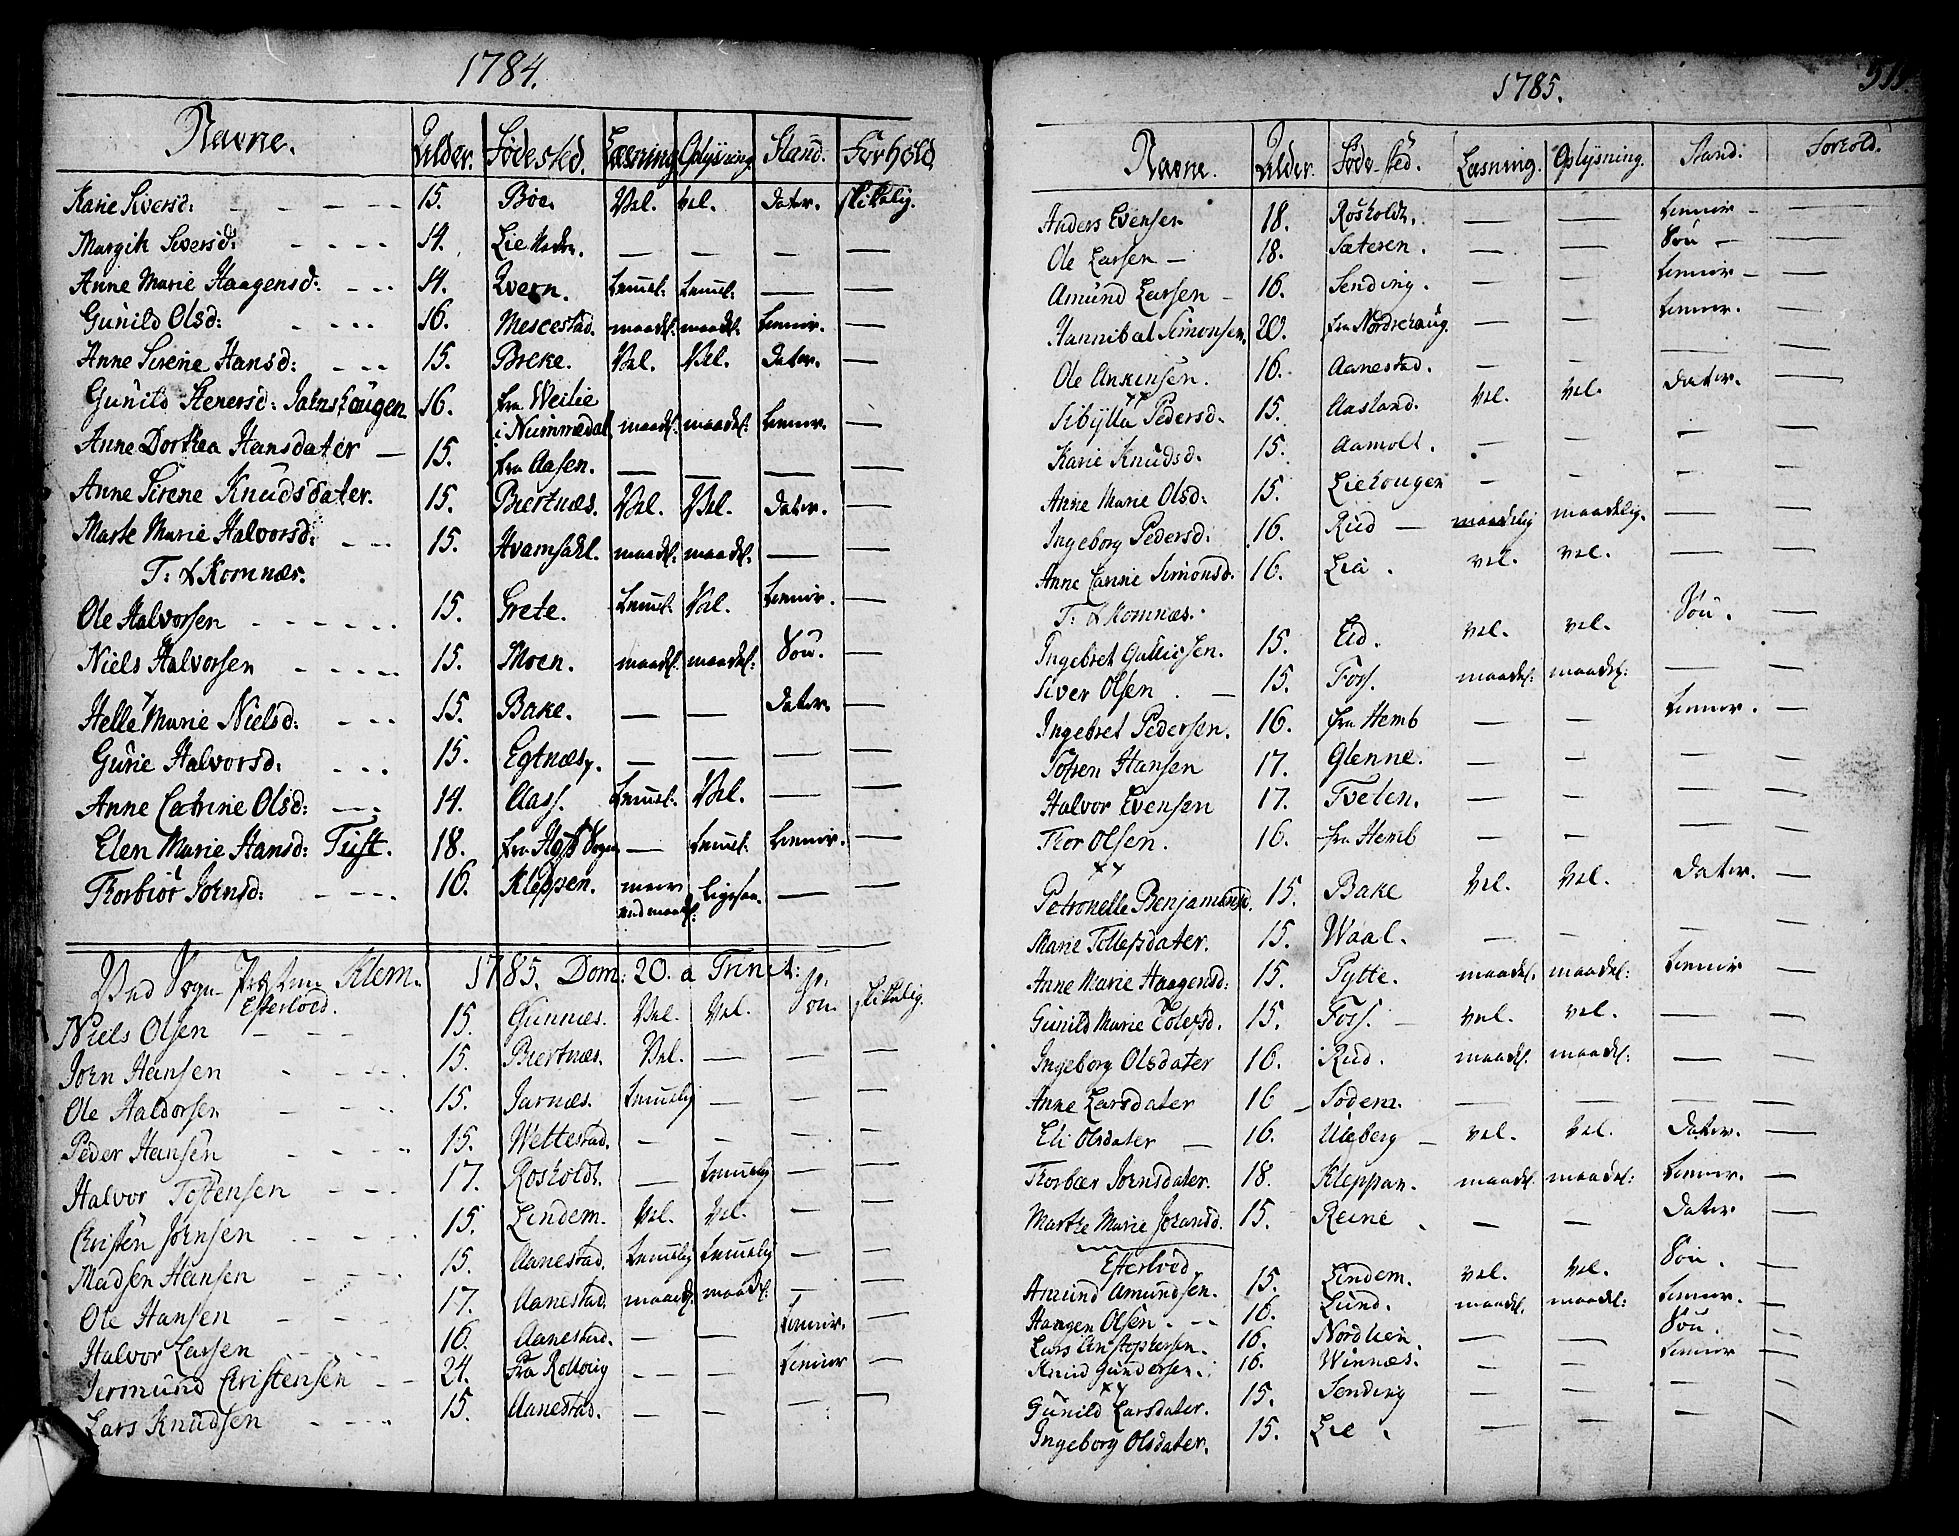 1784.
Navne. Alder. Fødested. Læsning Oplysning Stand. Forhold
Karie Siversd: 15. Bøe. Vel. vel. Dater. skikkelig.
Margith Siversd: 14. Lie — — — —
Anne Marie Haagensd: 14. Qvern. temel. temel. — —
Gunild Olsd: 16. Mescestad. maadel. maadel. tienner. —
Anne Sirene Hansd: 15. Breke. Vel. Vel. Dater. —
Gunild Stenersd: 16. fra Weilie
i Nummedal maadel. maadel. tienner. —
Anne Dorthea Hansdater — 15. fra Aasen. — — — —
Anne Sirene Knudsdater. 15. Biertnæs. Vel. Vel. Dater. —
Marte Marie Halvorsd: 15. Hvamsahl. maadel. maadel. — —
T: Komnæs.
Ole Halvorsen 15. Grete. temel. Vel. tienner. —
Niels Halvorsen 15. Moen. maadel. maadel. Søn. —
Helle Marie Nielsd: 15. Bake. — — Dater. —
Gurie Halvorsd: 15. Egtnæs. — — — —
Anne Catrine Olsd: 14. Aass. temel. Vel. — —
Elen Marie Hansd: Tuft. 18. fra — temel. tienner. —
Thorbiør Johnsd: 16. Kleppen. meer ligesaa. — —
end maadel.
Ved Sogne Klem. 1785. Dom: 20. a Trinit:
Efterløed.
Niels Olsen 15. Gunnæs. Vel. Vel. Søn. skikkelig.
John Hansen 15. Biertnæs. Vel. — — —
Ole Haldorsen 15. Jarnæs. temelig — — —
Peder Hansen 15. Wettestad. — — — —
Halvor Tostensen 17. Rosholdt. — temelig — —
Christen Johnsen 15. Lindem. Vel. Vel. — —
Madsen Hansen 15. Aanestad. temelig temelig — —
Ole Hansen 17. Aanestad. maadel. maadel. — —
Halvor Larsen 16. Aanestad. — — tienner. —
Jermund Christensen 24. Fra Rolloug — — tienner —
Lars Knudsen 15. Aanestad. — — — —
1785.
Navne. Alder. Føde-sted. Læsning. Oplysning. Stand: Forhold.
Anders Evensen 18. Rosholdt. — — tienner —
Ole Larsen — 18. Sæteren. — — Søn —
Amund Larsen — 16. Sending. — — tienner —
Hannibal Simonsen. 20. fra Nordrehaug. — — tienner. —
Ole Ansteensen. 16. Aanestad. — — — —
Sibylla Pedersd. 15. Aasland. vel. vel. Dater. —
Karie Knudsd. 15. Aamolt. — — — —
Anne Marie Olsd: 15. Liehougen — — — —
Ingeborg Pedersd: 16. Rud — maadelig maadelig. — —
Anne Carine Simonsd. 16. Lia. vel. vel. — —
T: Komnæs.
Ingebret Gullicsen. 15. Eid. vel. vel. Søn. —
Siver Olsen. — 15. Foss. maadel. maadel: — —
Ingebret Pedersen. 16. fra Hemb — — tienner. —
Tosten Hansen 17. Glenne. — — — —
Halvor Evensen 17. Tveten. — — — —
Thor Olsen. 16. fra Hemb — — — —
Petronelle Benjaminsd. 15. Bake vel. vel. Dater. —
Marie Tollefsdater. 15. Waal. — — — —
Anne Marie Haagensd: 15. Pytte. maadel. maadel: tienner —
Gunild Marie Tolefsd. 15. Foss. — vel. vel. — —
Ingeborg Olsdater 16. Rud. maadel. maadel: — —
Anne Larsdater 16 — Sødem. — — — —
Eli Olsdater — 16. Uleberg — vel. vel. Dater. —
Thorbær Johnsdater. 18. Kleppan. maadel. maadel: tienner. —
Marthe Marie Johansd. 15. Reine. — — Dater —
Efterløed.
Amund Amundsen. 15. Lindem. vel. vel. Søn. —
Haagen Olsen. 16. Lund. maadel. maadel: tienner. —
Lars Christophersen. 16. Nordlien. — — Søn. —
Knud Gundersen. 16. Winnæs. — — tienner —
Gunild Larsdater. 15. Sending — — — —
Ingeborg Olsdater. 15. Lie. — — — —